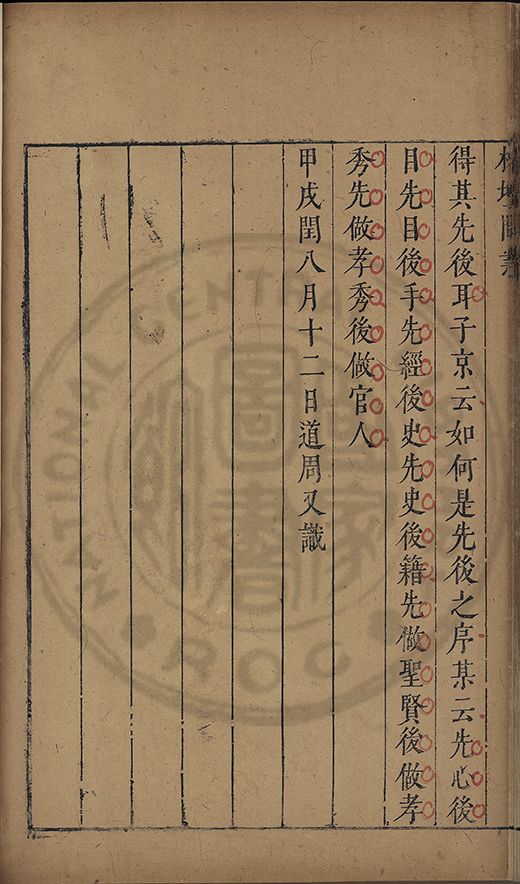 得其先後耳子京云如何是先後之序某云先心後
目先目後手先經後史先史後籍先做聖賢後做孝
秀先做孝秀後做官人
甲戌閏八月十二日道周又識